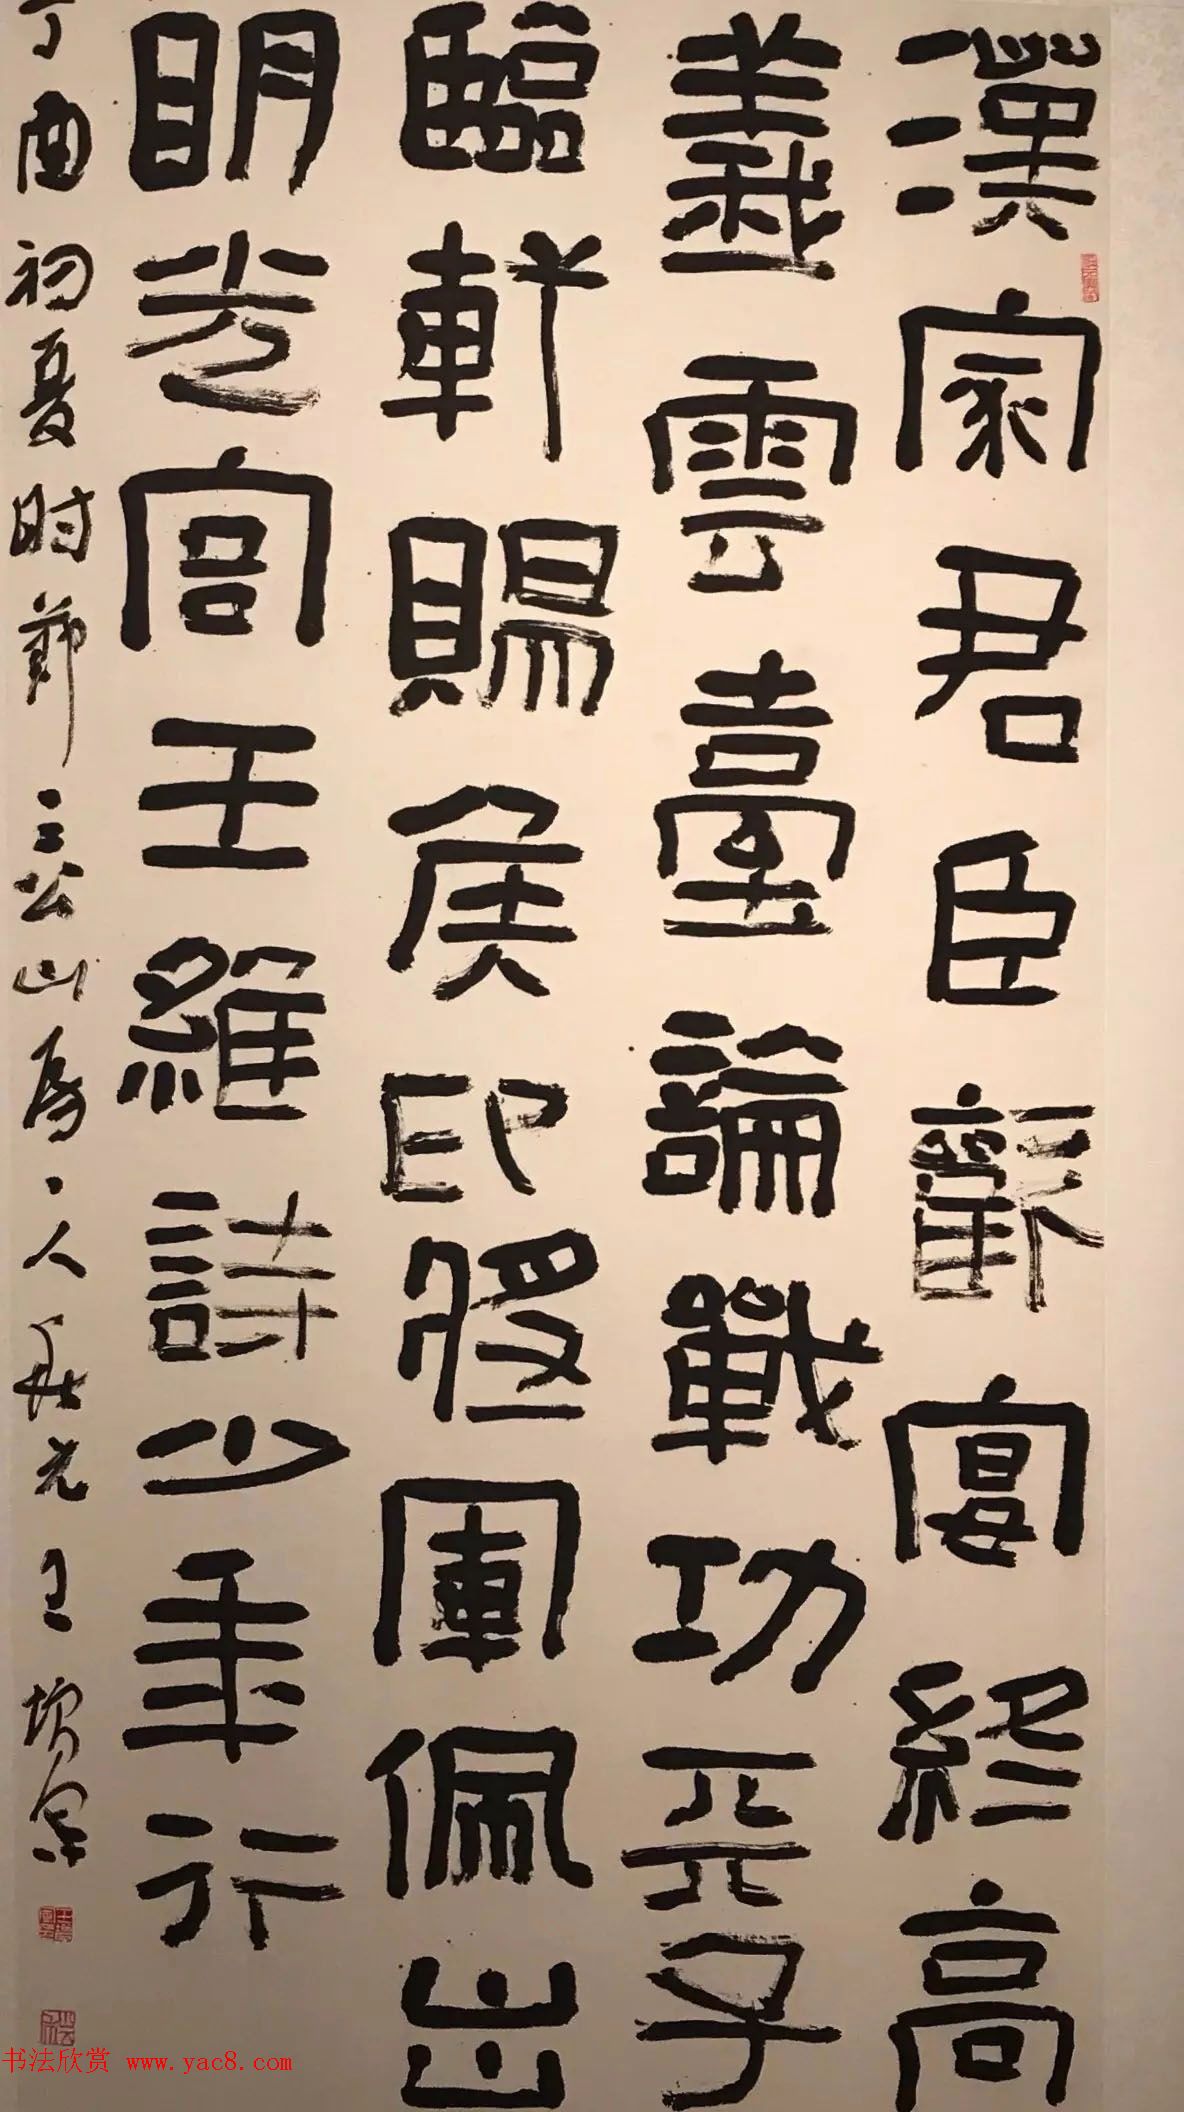 漢家君臣歡宴終高
義雲臺論戰功天子
臨軒賜侯印將軍佩出
明光宮王維詩少年行
丁酉初夏时節三公山房主人
书法欣赏 www.yac8.com